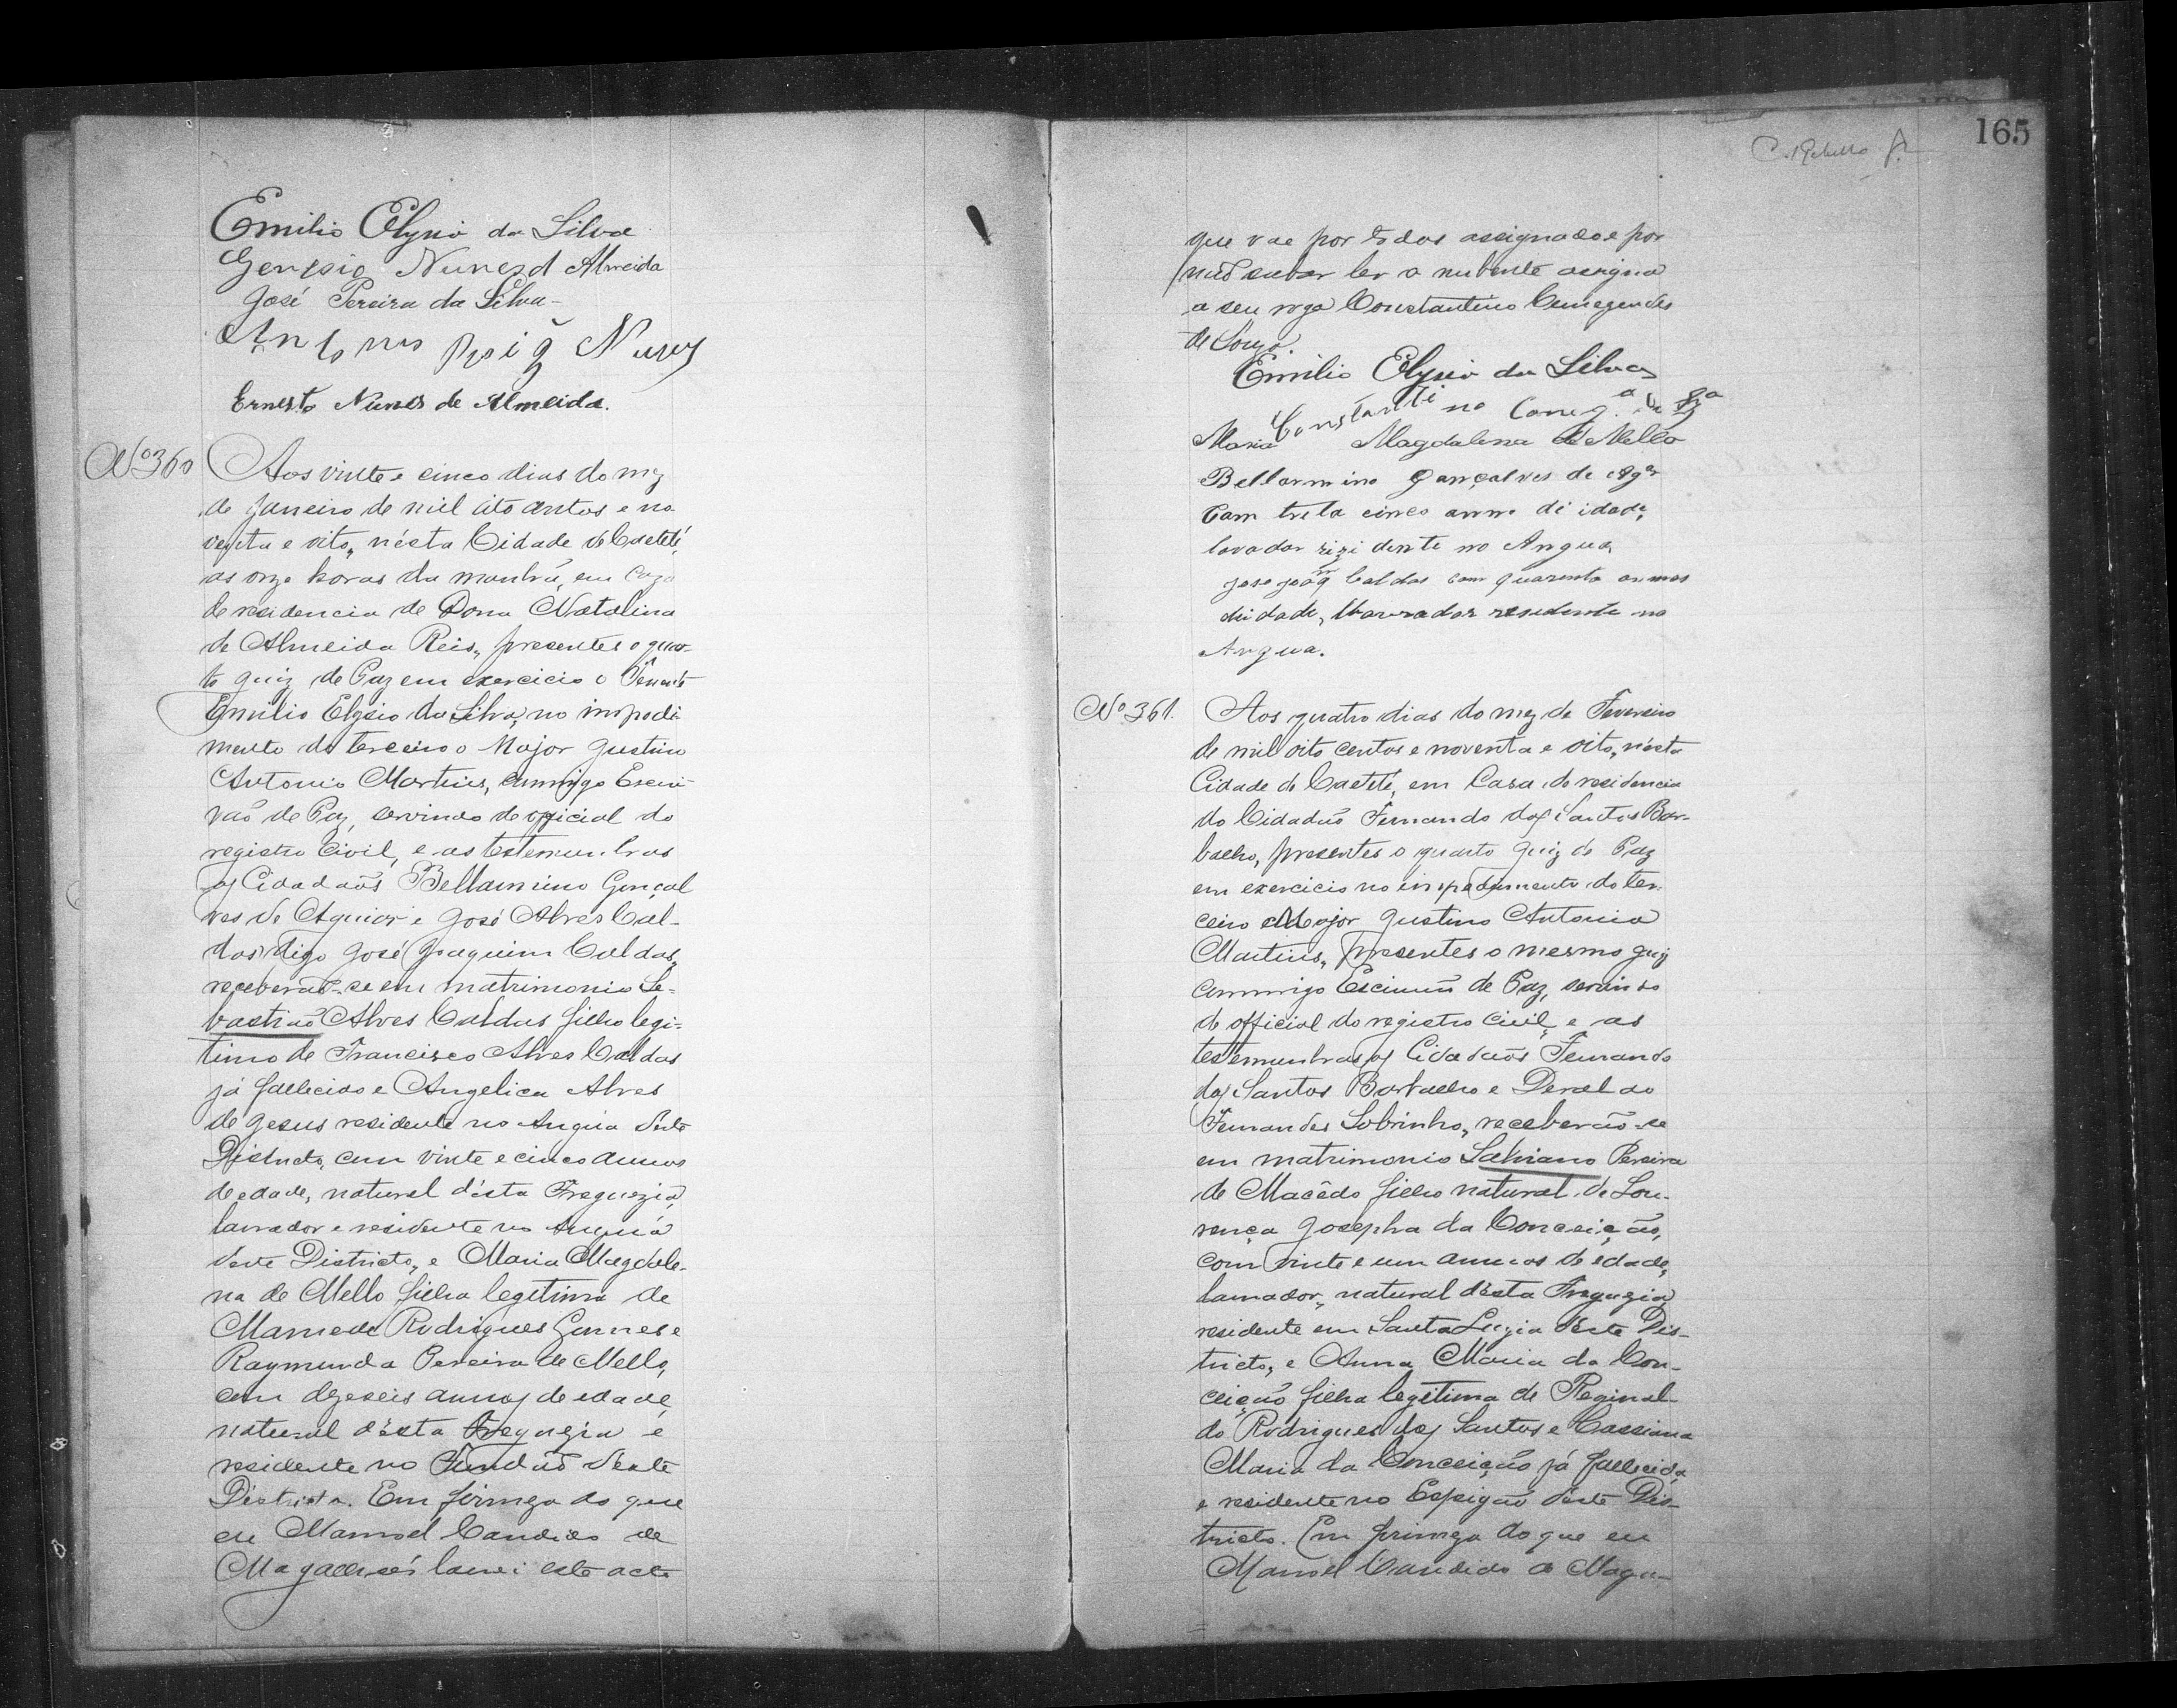 Emilio Elysio da Silva
Nunes d Almeida
José Pereira da Silva
Nunes
Ernesto Nunes de Almeida.
Nº 360 Aos vinte e cinco dias do mez
de Janeiro de mil oito centos e no-
venta e oito, nésta Cidade de Caetité,
as onze horas da manhã, em caza
de residencia de Dona Natalina
de Almeida Reis, presentes o quar-
to Juiz de Paz em exercicio o Tenente
Emilio Elysio da Silva, no impedi-
mento do terceiro o Major Justino
Antonio Martins, commigo Escri-
vaõ de Paz, servindo de official do
registro Civil, e as testemunhas
os Cidadaõs Bellarmino Gonçal
ves de Aguiar e José Alves Cal-
das digo José Joaquim Caldas,
receberaõ-se em matrimonio Se-
bastiaõ Alves Caldas filho legi-
timo de Francisco Alves Caldas
já fallecido e Angelica Alves
de Jesus residente no Anguá deste
Districto, com vinte e cinco annos
de edade, natural désta Freguezia,
lavrador e residente no Anguá
deste Districto, e Maria Magdale-
na de Mello filha legitima de
Mamede Rodrigues Gomes e
Raymunda Pereira de Mello,
com dezeseis annos de edade,
natural désta Freguezia e
residente no Fundaõ deste
Districto. Em firmeza do que
eu Manoel Candido de
Magalhaés lavrei este acto
165
que vae por todos assignado e por
naõ saber ler o nubente assigna
a seu rogo Constantino
de Souza.
Emilio Elysio da Silva
Constantino
Maria Magdalena de Mello
Bellarmino Gonçalves de
Com treta cinco anno di idade,
lavador rizidente no Angua,
jose joaqm Caldas com quarenta annos
didade, lavrador residente no
Angua.
Nº 361. Aos quatro dias do mez de Fevereiro
de mil oito centos e noventa e oito, nésta
Cidade de Caetité, em Casa de residencia
do Cidadaõ Fernando dos Santos Bar-
balho, presentes o quarto Juiz de Paz
em exercicio no impedimento do ter-
ceiro o Major Justino Antonio
Martins, presentes o mesmo Juiz
commigo Escrivaõ de Paz, servindo
de official do registro civil, e as
testemunhas os Cidadaõs Fernando
dos Santos Barbalho e
Fernandes Sobrinho, receberaõ-se
em matrimonio Salviano Pereira
de Macêdo filho natural de Lou-
rença Josepha da Conceiçaõ,
com vinte e um annos de edade,
lavrador, natural désta Freguezia
residente em Santa Luzia deste Dis-
tricto, e Anna Maria da Con-
ceiçaõ filha legitima de Reginal-
do Rodrigues dos Santos e Cassiana
Maria da Conceiçaõ já fallecida
e residente no Espigaõ deste Dis-
tricto. Em firmeza do que eu
Manoel Candido de Maga-